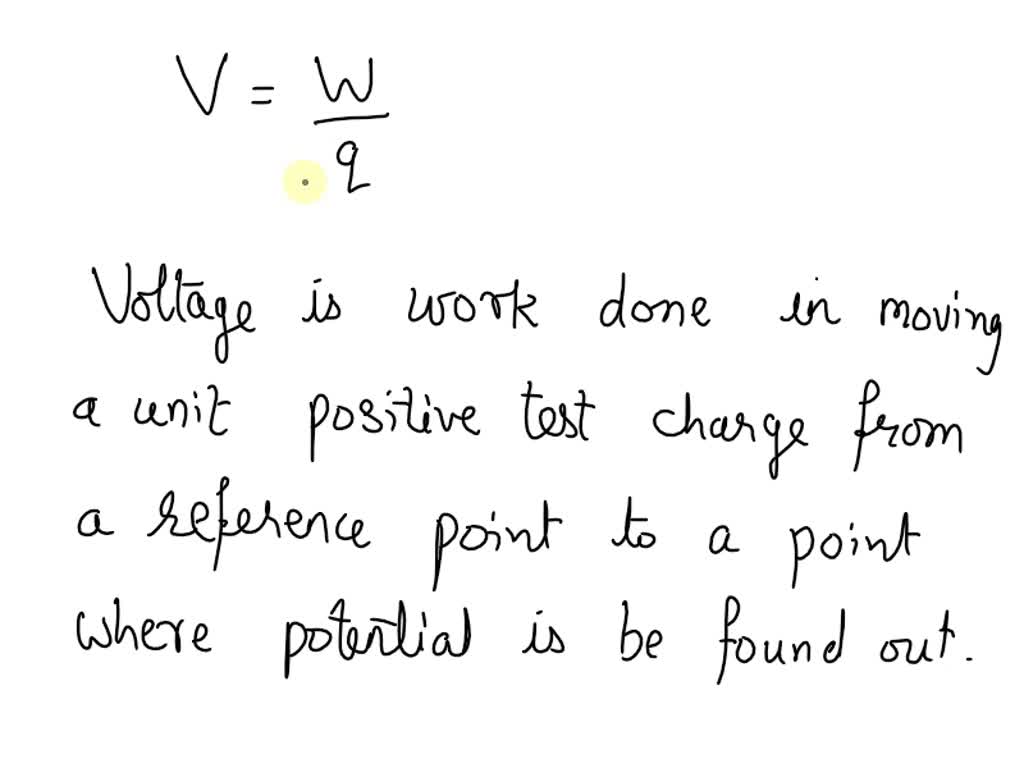 V = W/q
Voltage is work done in moving
a unit positive test charge from
a reference point to a point
where potential is be found out.